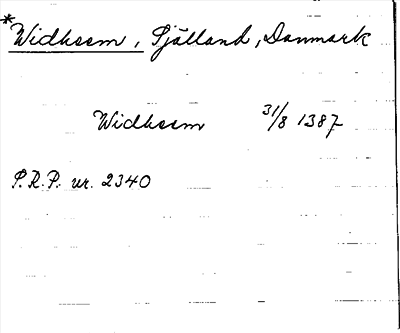 *Widhsem, Själland, Danmark
Widhsem 31/8 1387
S.R.P. nr. 2340